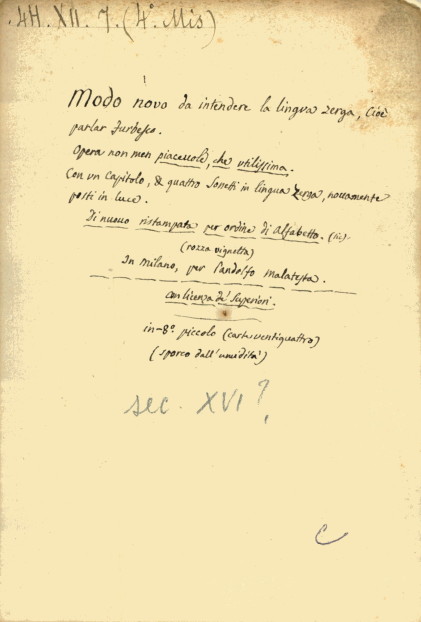 4H. XII. 7. (4°. Mis)
Modo novo da intendere la lingua zerga, Cioè
parlar furbesco.
Opera non men piacevole, che utilissima.
Con vn Capitolo, & quattro Sonetti in lingua Zerga, novamente
posti in luce.
Di nuovo ristampata per ordine di Alfabetto. (sic).
(rozza vignetta)
In Milano, per Pandolfo Malatesta.
con licenza de' Superiori.
in-8°. piccolo (carte ventiquattro)
(sporco dall'umidità)
sec. XVI?
C